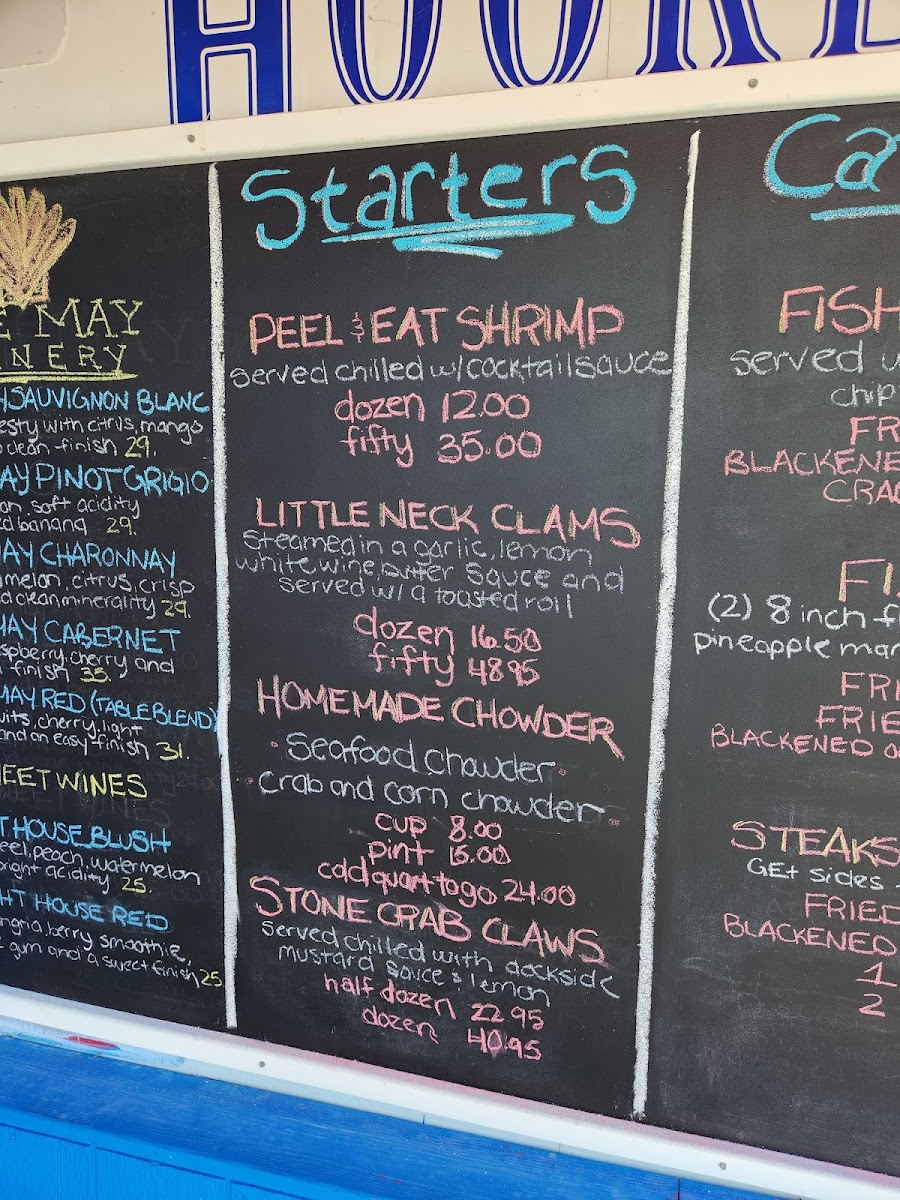 HOOK
E MAY
NERY
SAUVIGNON BLANC
esty with citrus, mango
clean finish 29.
AY PINOT GRIGIO
on, soft acidity
banana 29.
MAY CHARONNAY
melon, citrus, crisp
clean minerality 29.
MAY CABERNET
spberry, cherry and
finish 35.
MAY RED (TABLE BLEND)
uits, cherry, light
and an easy finish 31.
EET WINES
T HOUSE BLUSH
eel, peach, watermelon
bright acidity 25.
HT HOUSE RED
ngria, berry smoothie,
gum and a sweet finish 25
Starters
PEEL & EAT SHRIMP
served chilled w/ cocktail sauce
dozen 12.00
fifty 35.00
LITTLE NECK CLAMS
Steamed in a garlic, lemon
white wine, butter sauce and
served w/ a toasted roll
dozen 16.50
fifty 48.95
HOMEMADE CHOWDER
• Seafood chowder •
• crab and corn chowder •
cup 8.00
pint 15.00
cold quart to go 24.00
STONE CRAB CLAWS
served chilled with dockside
mustard sauce & lemon
half dozen 22.95
dozen 40.95
Ca
FISH
served
chip
FR
BLACKENE
CRA
FI
(2) 8 inch f
pineapple man
FRI
FRIE
BLACKENED o
STEAKS
GEt sides
FRIED
BLACKENED
1
2